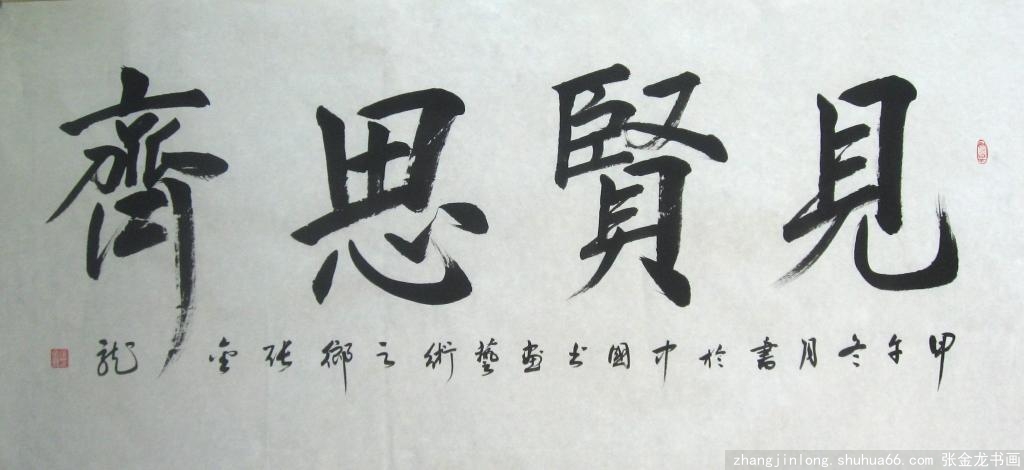 見賢思齊
甲午冬月書於中國书画藝術之鄉张金龙
zhangjinlong.shuhua66.com 张金龙书画